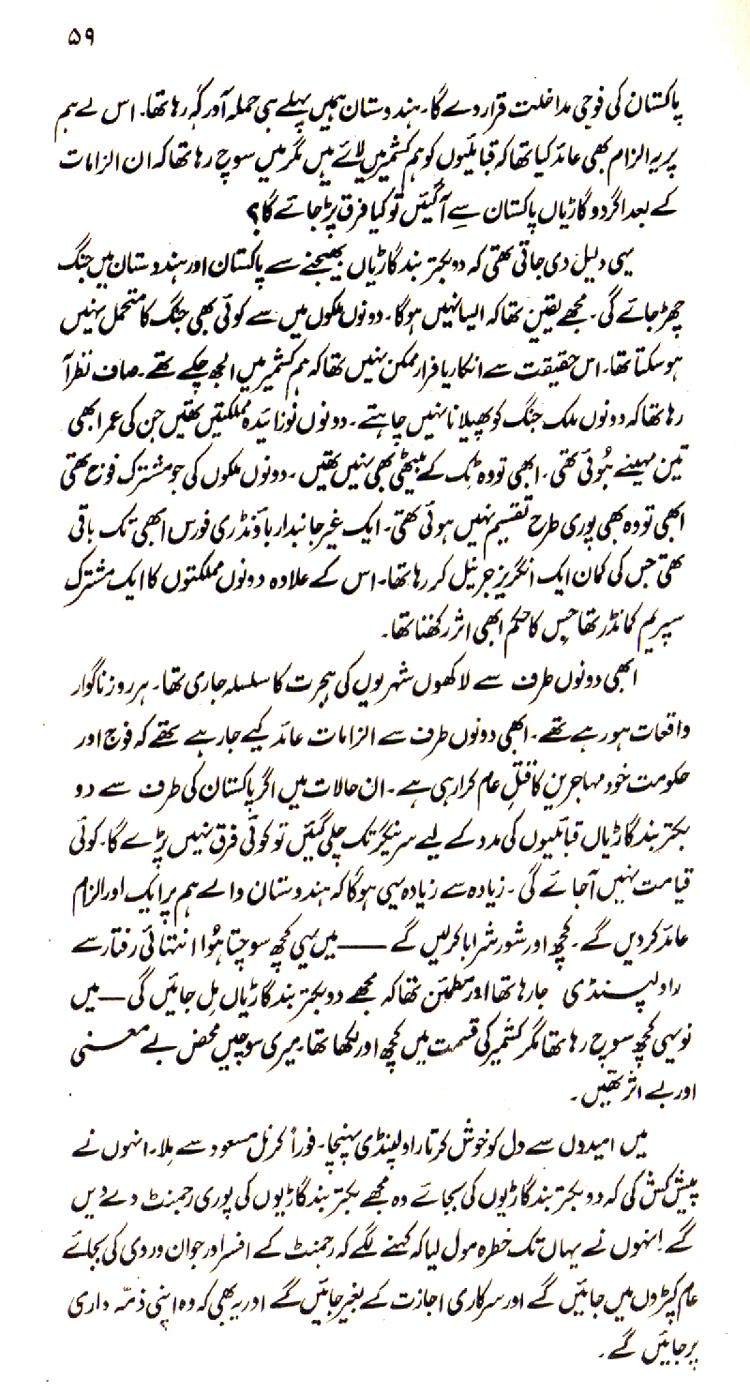 ۵۹
پاکستان کی فوجی مداخلت قرار دے گا۔ ہندوستان ہمیں پہلے ہی حملہ آور کہہ رہا تھا۔ اس نے ہم
پر یہ الزام بھی عائد کیا تھا کہ قبائلیوں کو ہم کشمیر میں لائے ہیں مگر میں سوچ رہا تھا کہ ان الزامات
کے بعد اگر دو گاڑیاں پاکستان سے آ گئیں تو کیا فرق پڑ جائے گا؟
یہی دلیل دی جاتی تھی کہ دو بکتر بند گاڑیاں بھیجنے سے پاکستان اور ہندوستان میں جنگ
چھڑ جائے گی۔ مجھے یقین تھا کہ ایسا نہیں ہوگا۔ دونوں ملکوں میں سے کوئی بھی جنگ کا متحمل نہیں
ہو سکتا تھا۔ اس حقیقت سے انکار یا فرار ممکن نہیں تھا کہ ہم کشمیر میں الجھ چکے تھے۔ صاف نظر آ
رہا تھا کہ دونوں ملک جنگ کو پھیلانا نہیں چاہتے۔ دونوں نوزائیدہ مملکتیں تھیں جن کی عمر ابھی
تین مہینے ہوئی تھی۔ ابھی تو وہ ٹک کے بیٹھی بھی نہیں تھیں۔ دونوں ملکوں کی جو مشترک فوج تھی
ابھی تو وہ بھی پوری طرح تقسیم نہیں ہوئی تھی۔ ایک غیر جانبدار باؤنڈری فورس ابھی تک باقی
تھی جس کی کمان ایک انگریز جرنیل کر رہا تھا۔ اس کے علاوہ دونوں مملکتوں کا ایک مشترک
سپریم کمانڈر تھا جس کا حکم ابھی اثر رکھتا تھا۔
ابھی دونوں طرف سے لاکھوں شہریوں کی ہجرت کا سلسلہ جاری تھا۔ ہر روز ناگوار
واقعات ہو رہے تھے۔ ابھی دونوں طرف سے الزامات عائد کیے جا رہے تھے کہ فوج اور
حکومت خود مہاجرین کا قتلِ عام کرا رہی ہے۔ ان حالات میں اگر پاکستان کی طرف سے دو
بکتر بند گاڑیاں قبائلیوں کی مدد کے لیے سرینگر تک چلی گئیں تو کوئی فرق نہیں پڑے گا۔ کوئی
قیامت نہیں آ جائے گی۔ زیادہ سے زیادہ یہی ہوگا کہ ہندوستان والے ہم پر ایک اور الزام
عائد کر دیں گے۔ کچھ اور شور شرابا کر لیں گے —— میں یہی کچھ سوچتا ہوا انتہائی رفتار سے
راولپنڈی جا رہا تھا اور مطمئن تھا کہ مجھے دو بکتر بند گاڑیاں مل جائیں گی — میں
تو یہی کچھ سوچ رہا تھا مگر کشمیر کی قسمت میں کچھ اور لکھا تھا۔ میری سوچیں محض بے معنی
اور بے اثر تھیں۔
میں امیدوں سے دل کو خوش کرتا راولپنڈی پہنچا۔ فوراً کرنل مسعود سے ملا۔ انہوں نے
پیش کش کی کہ دو بکتر بند گاڑیوں کی بجائے وہ مجھے بکتر بند گاڑیوں کی پوری رجمنٹ دے دیں
گے۔ انہوں نے یہاں تک خطرہ مول لیا کہ کہنے لگے کہ رجمنٹ کے افسر اور جوان وردی کی بجائے
عام کپڑوں میں جائیں گے اور سرکاری اجازت کے بغیر جائیں گے اور یہ بھی کہ وہ اپنی ذمّہ داری
پر جائیں گے۔